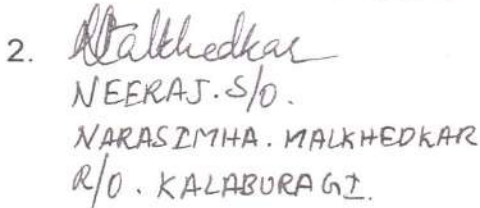 2. Malkhedkar
NEERAJ. S/O.
NARASIMHA. MALKHEDKAR
R/O. KALABURAGI.